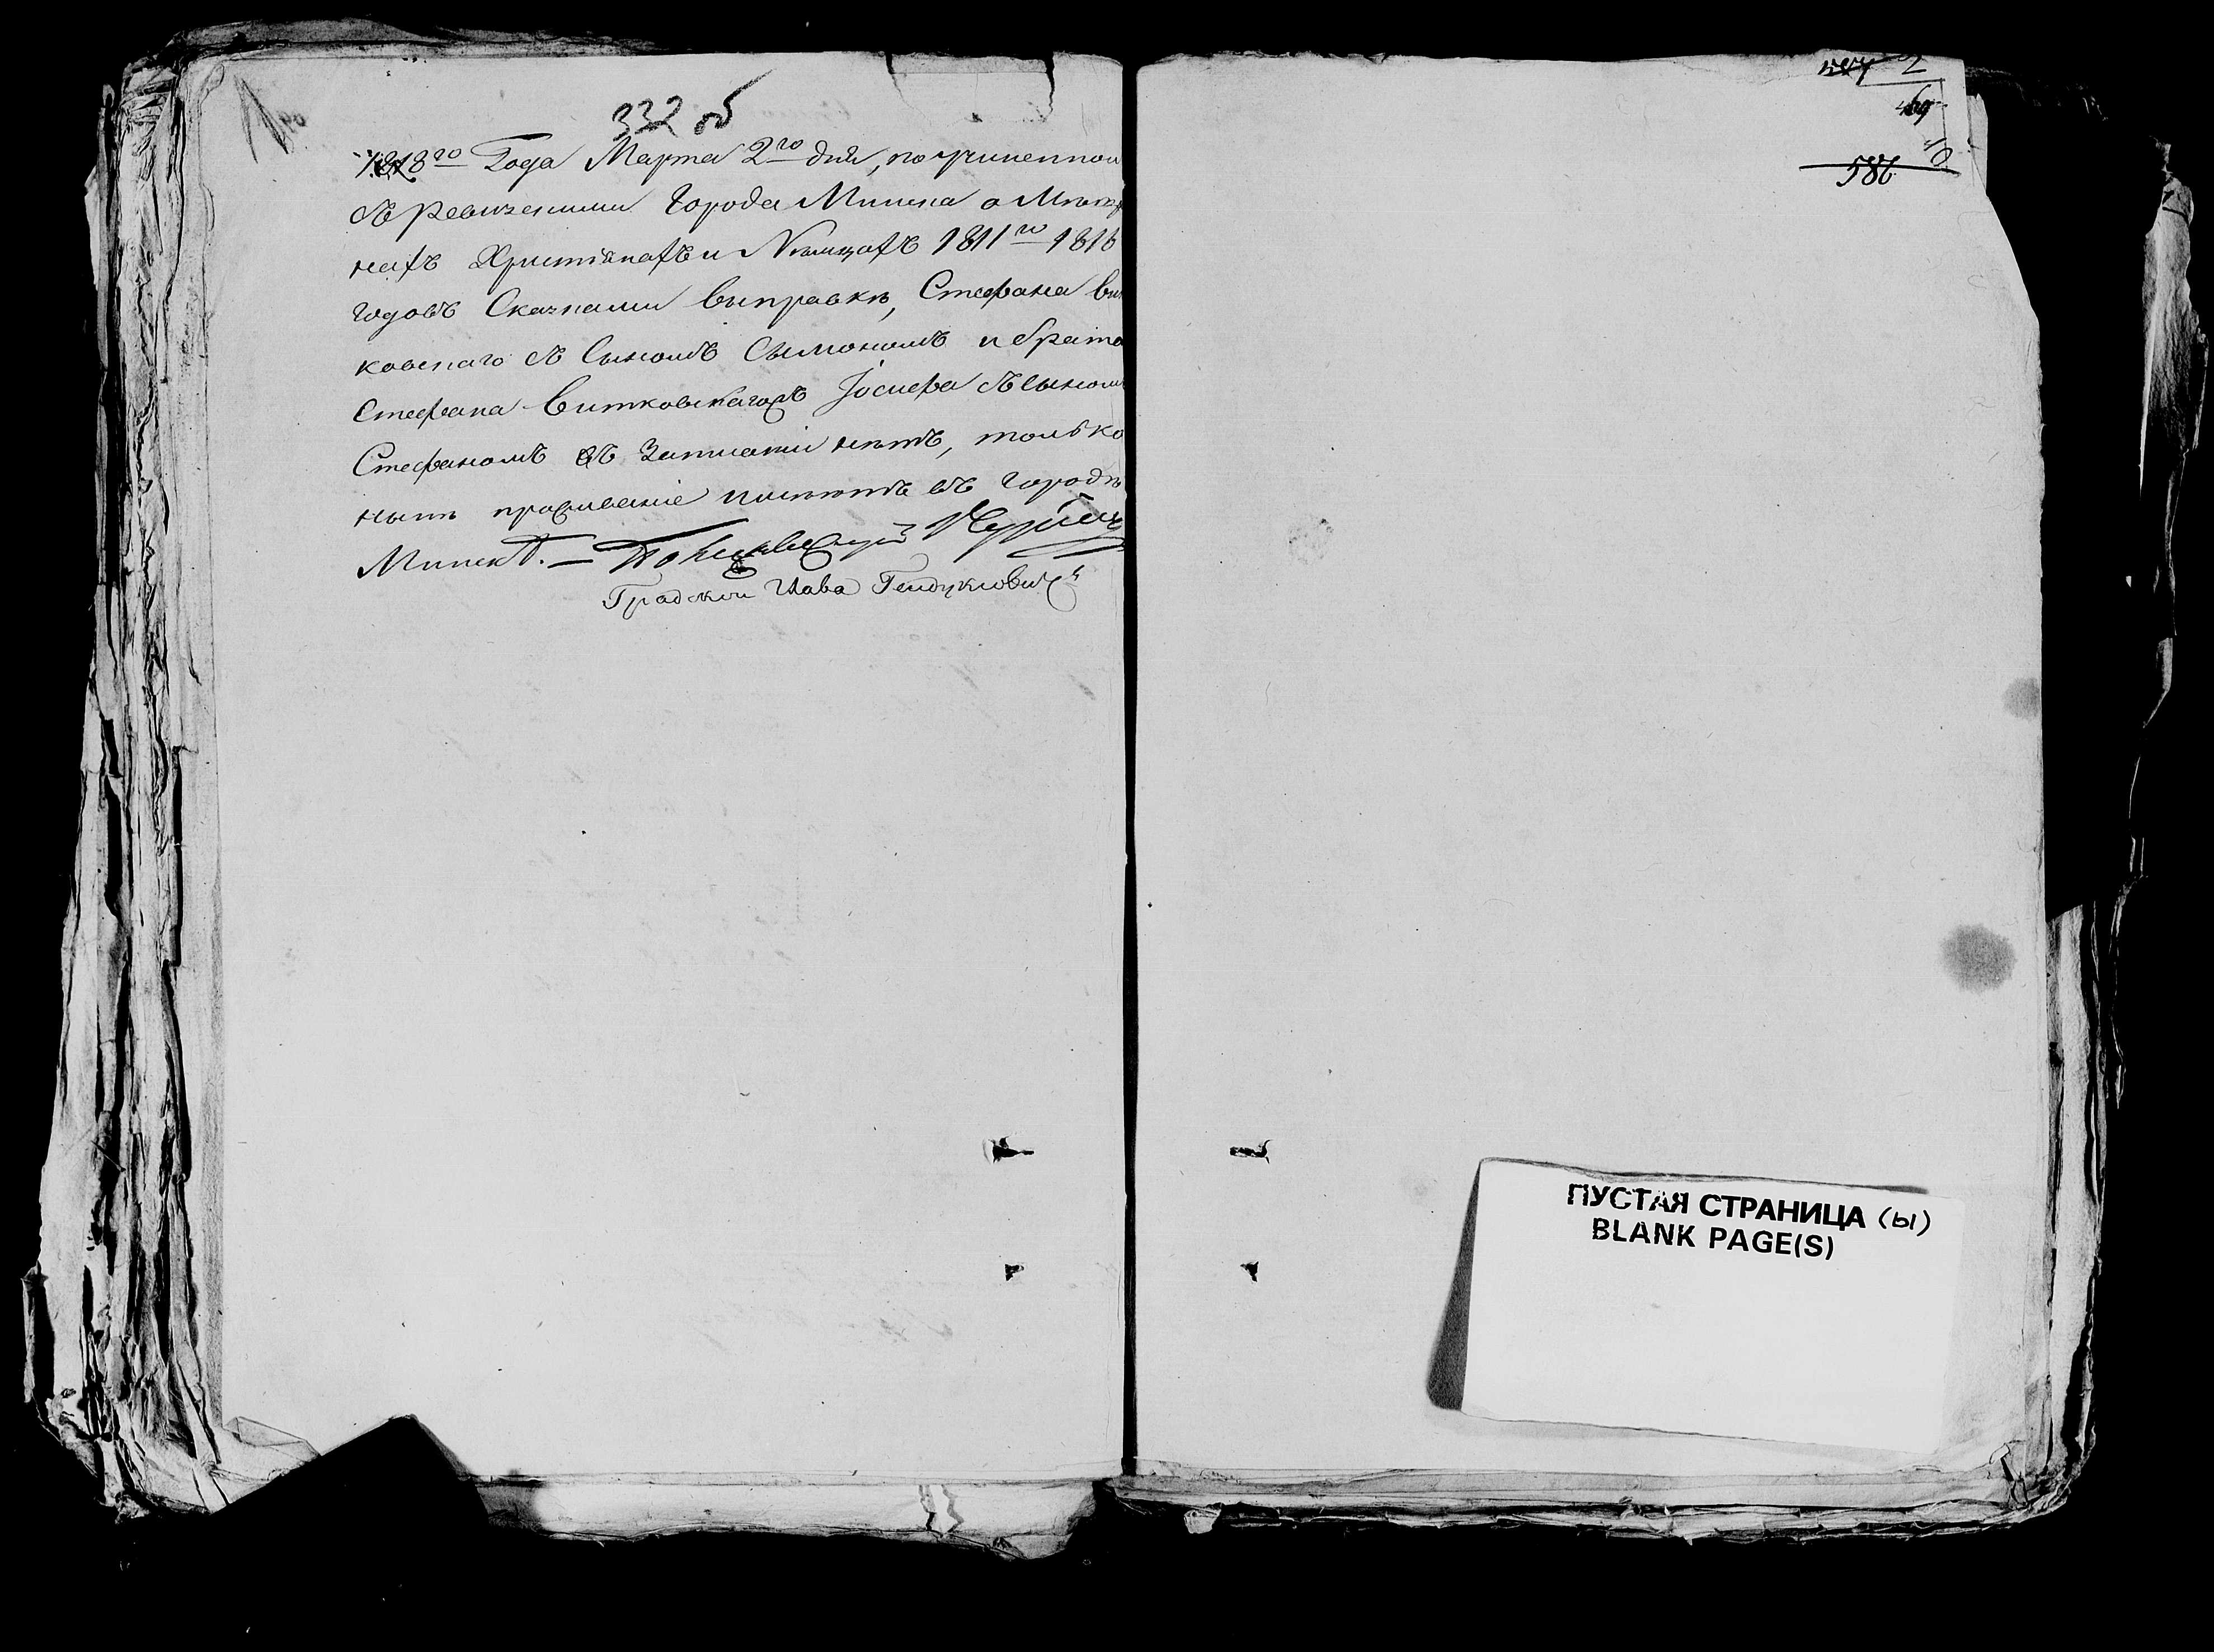 332 об
1818го Года Марта 2го дня, по учиненной
съ Ревизскими Города Минска о Мѣща
нахъ Христiанахъ и Нѣмцахъ 1811го 1816
годовъ Сказками выправки, Стефана Вит
ковскаго съ Сыномъ Сымономъ и брата
Стефана Витковскагожъ Iосифа съ Сыномъ
Стефаномъ въ Записати нѣтъ, только
нынѣ проживанiе имѣютъ въ Городѣ
Минскѣ. —
Градской Глава
2
586
ПУСТАЯ СТРАНИЦА (Ы)
BLANK PAGE(S)